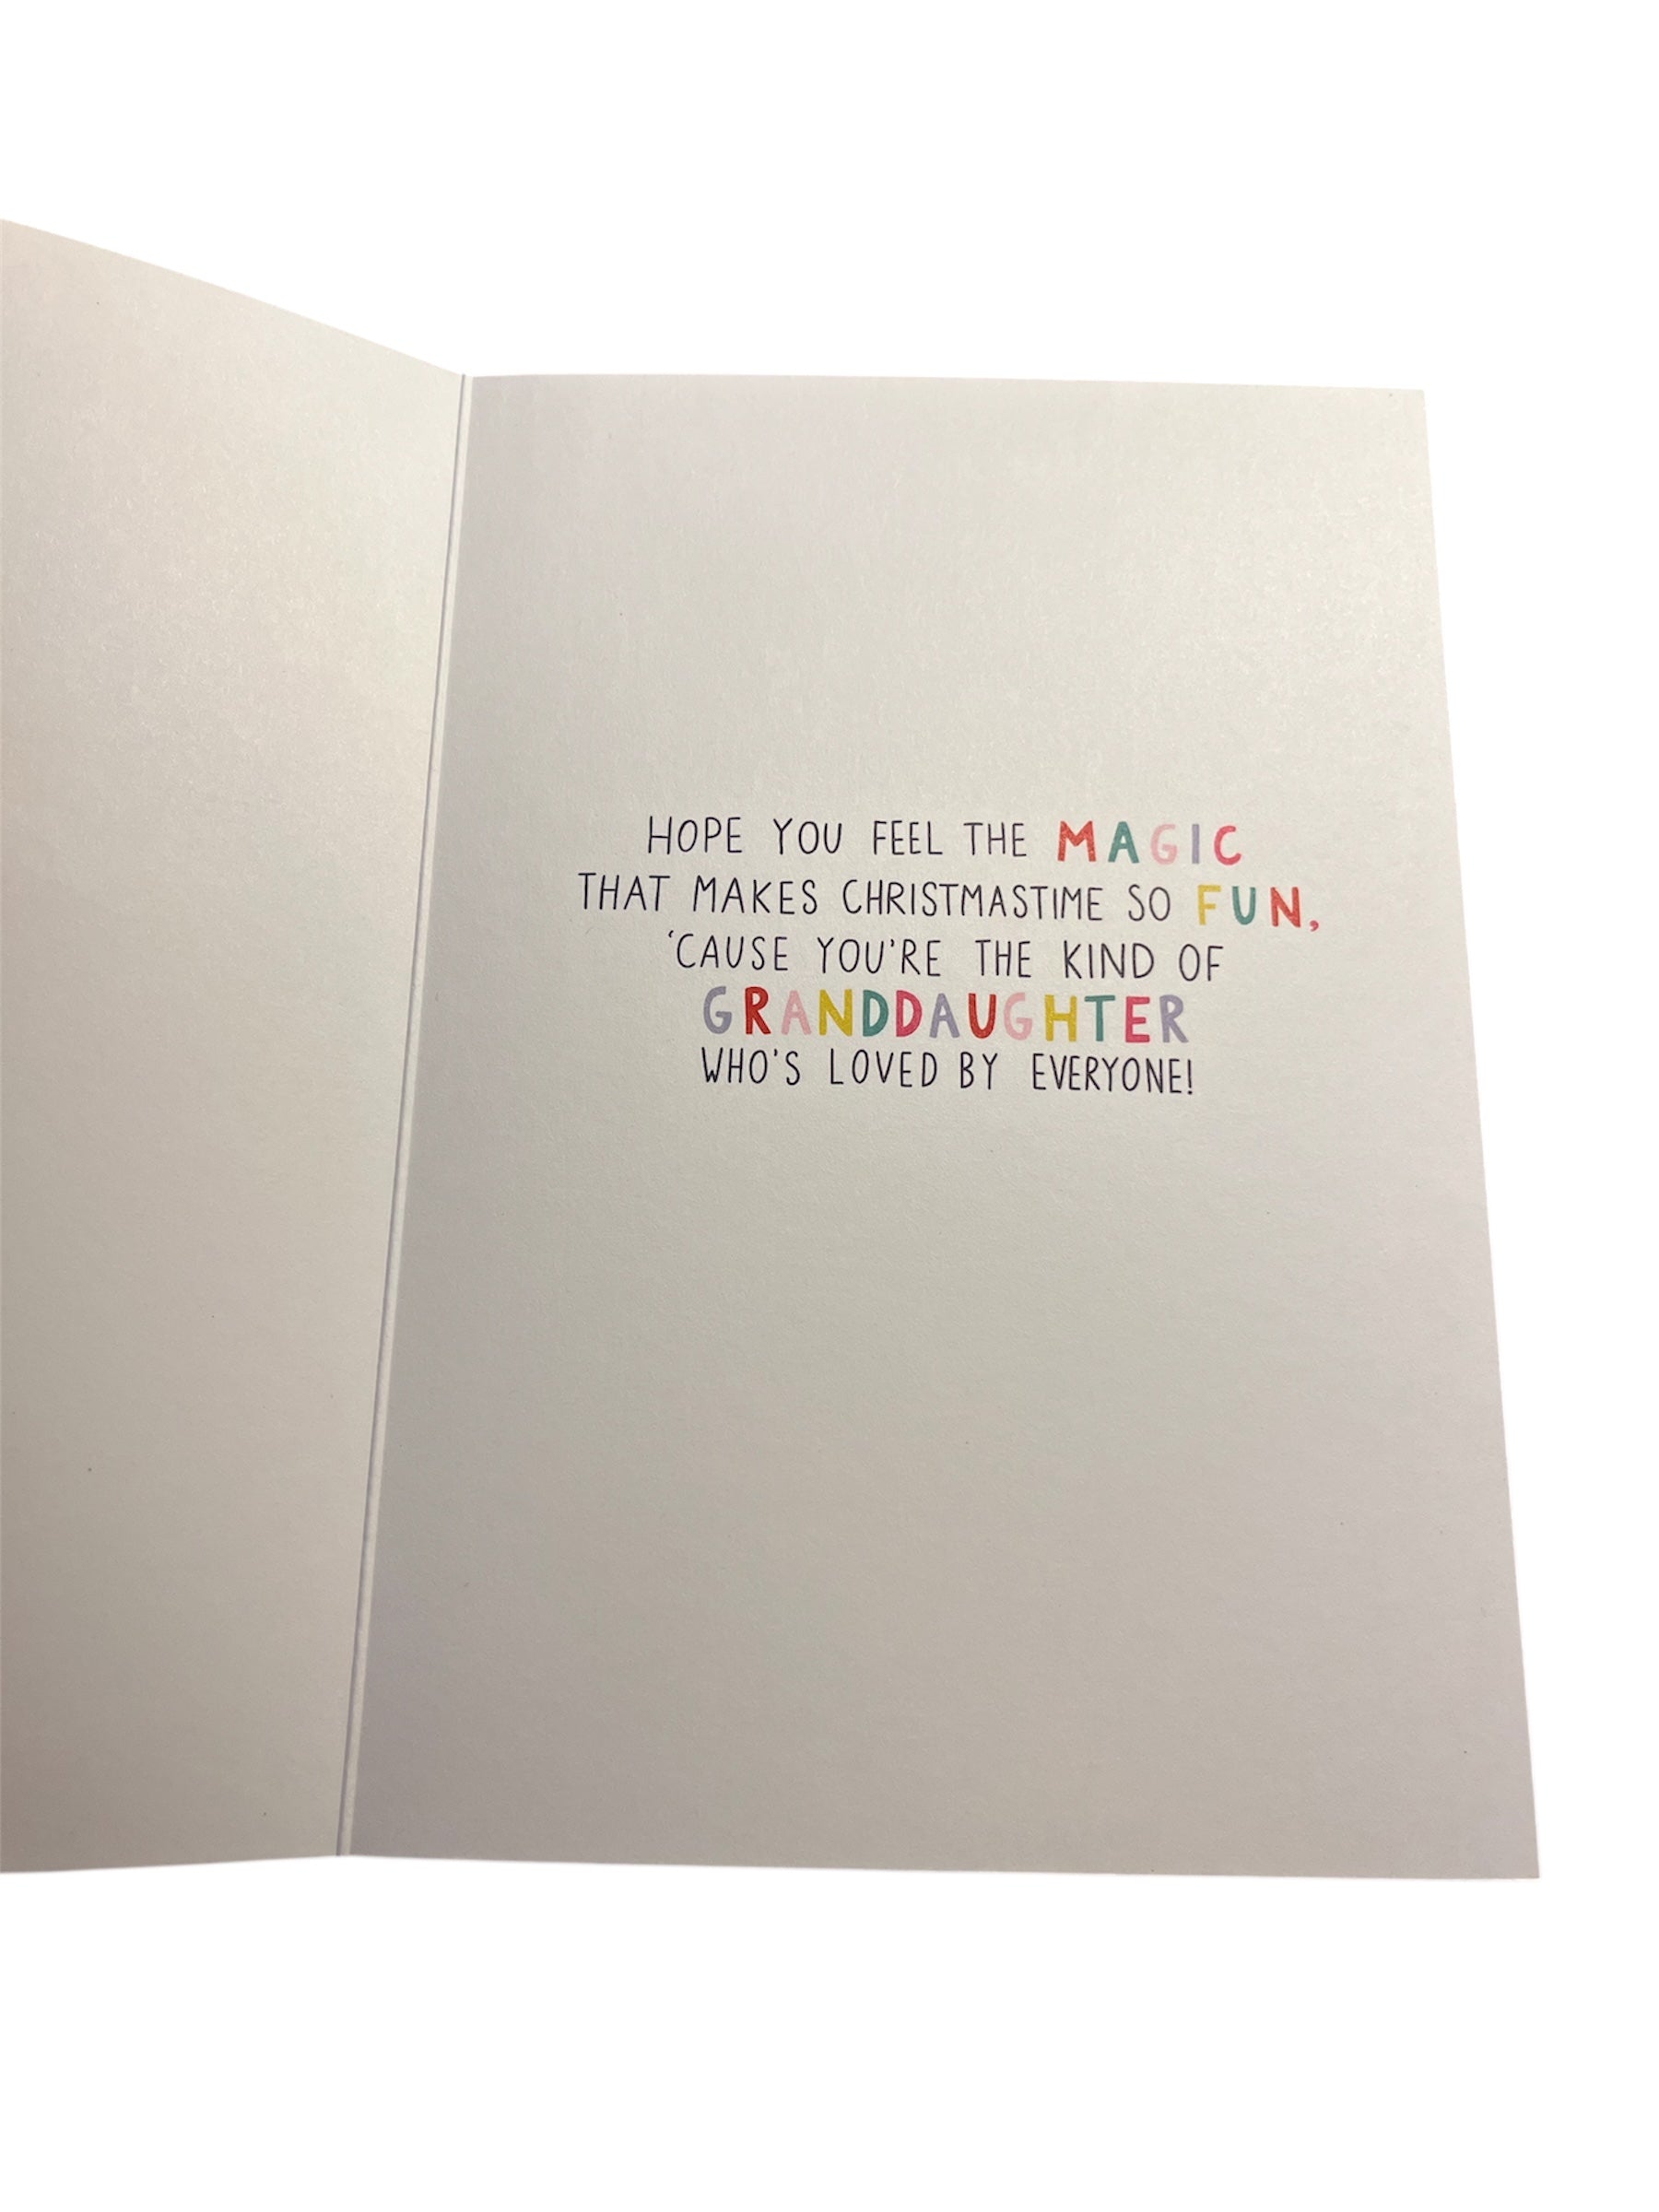 HOPE YOU FEEL THE MAGIC
THAT MAKES CHRISTMASTIME SO FUN,
‘CAUSE YOU'RE THE KIND OF
GRANDDAUGHTER
WHO'S LOVED BY EVERYONE!